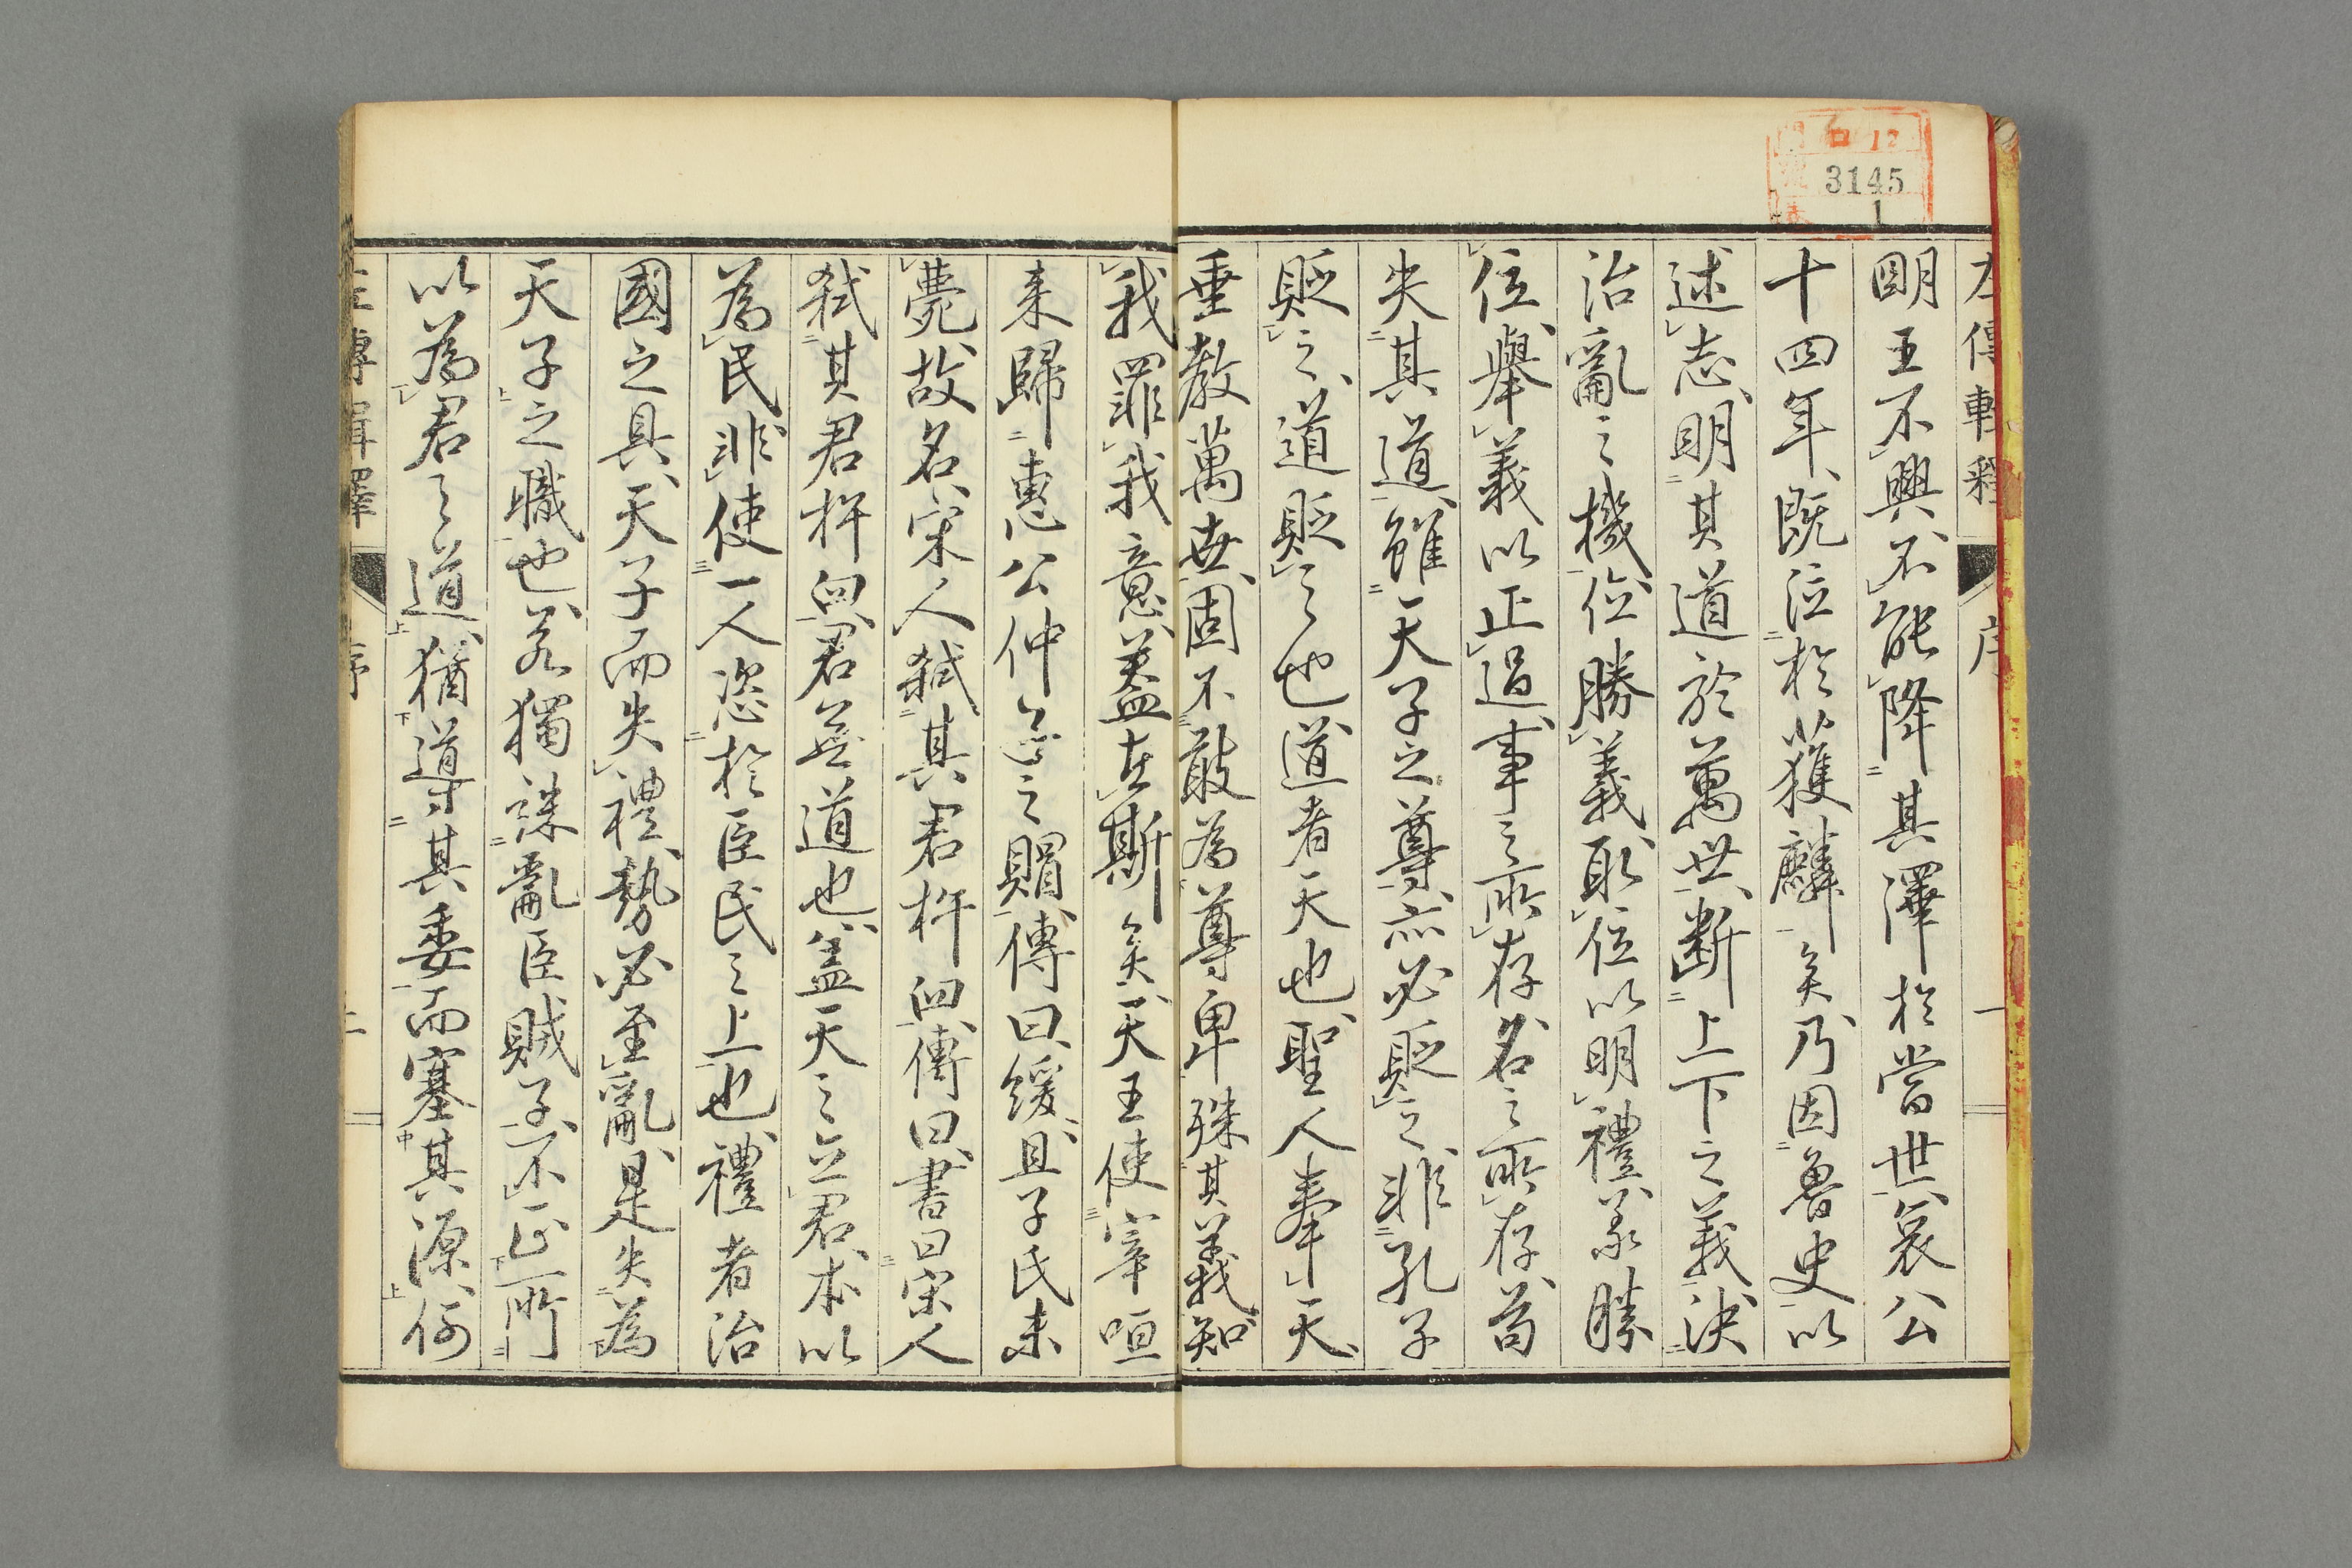 3145
1
12
左傳輯釋 序 一
明王不興不能降其澤於當世哀公
十四年既泣於獲麟矣乃因魯史以
述志明其道於萬世斷上下之義決
治亂之機位勝義取位以明禮義勝
位舉義以正過事之所存名之所存苟
失其道雖天子之尊亦必貶之非孔子
貶之道貶之也道者天也聖人奉天
垂教萬世固不敢為尊卑殊其義知
我罪我意蓋在斯矣天王使宰咺
来歸惠公仲子之賵傳曰緩且子氏未
薨故名宋人弑其君杵臼傳曰書曰宋人
弑其君杵臼君無道也蓋天之立君本以
為民非使一人恣於臣民之上也禮者治
國之具天子而失禮勢必至亂是失為
天子之職也若獨誅亂臣賊子不正所
以為君之道猶導其委而塞其源何
左傳輯釋 序 二